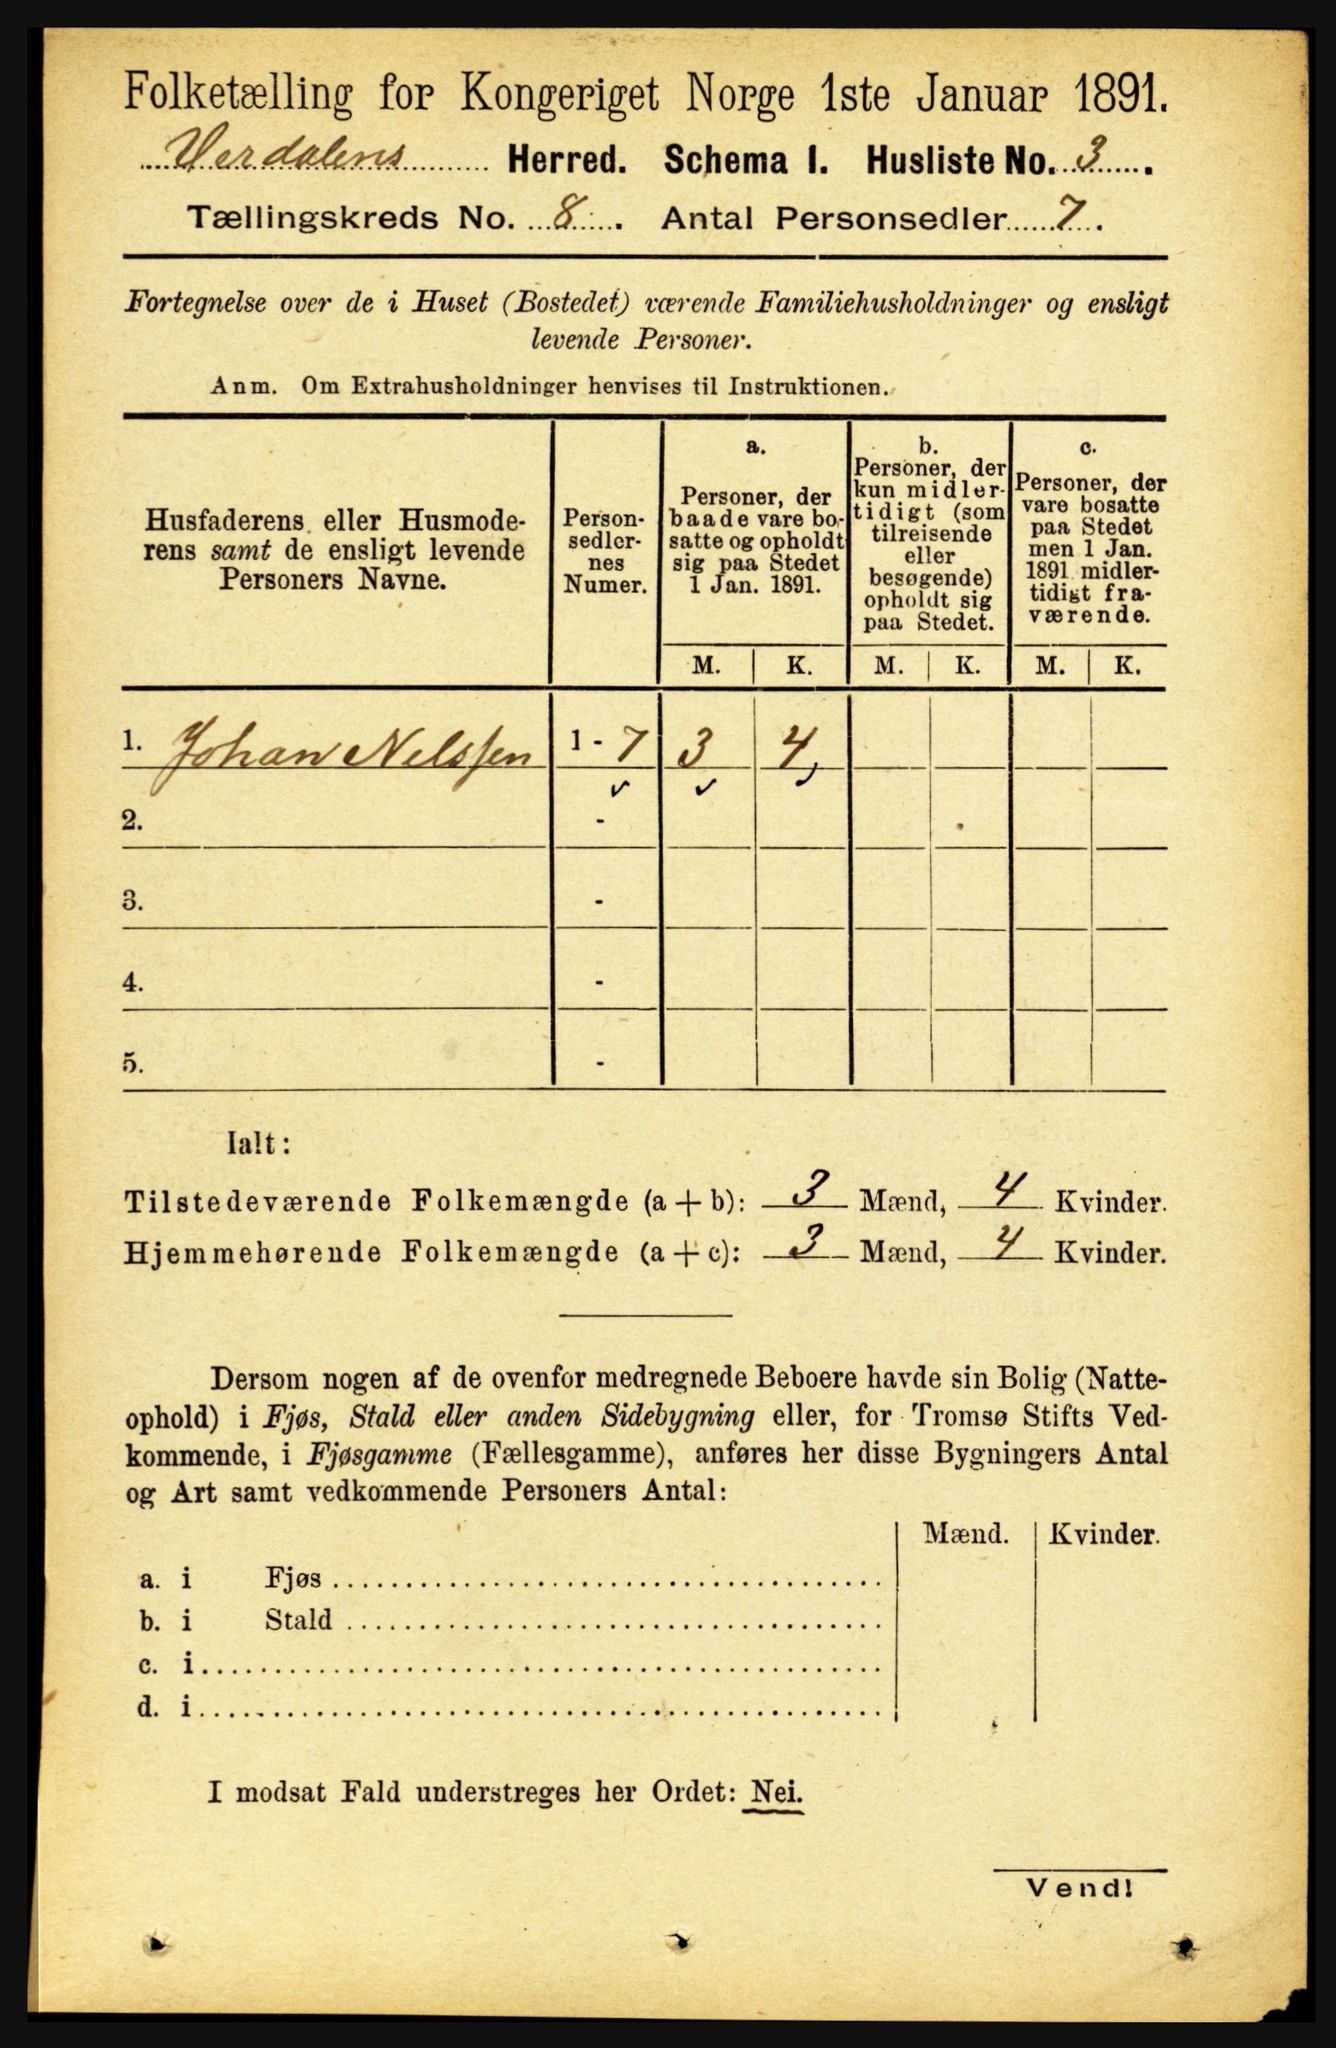 Folketælling for Kongeriget Norge 1ste Januar 1891.
Verdalens Herred. Schema I. Husliste No. 3.
Tællingskreds No. 8. Antal Personsedler 7.
Fortegnelse over de i Huset (Bostedet) værende Familiehusholdninger og ensligt
levende Personer.
Anm. Om Extrahusholdninger henvises til Instruktionen.
Husfaderens eller Husmode-
rens samt de ensligt levende
Personers Navne.
Person-
sedler-
nes
Numer.
a.
Personer, der
baade vare bo-
satte og opholdt
sig paa Stedet
1 Jan. 1891.
b.
Personer, der
kun midler-
tidigt (som
tilreisende
eller
besøgende)
opholdt sig
paa Stedet.
c.
Personer, der
vare bosatte
paa Stedet
men 1 Jan.
1891 midler-
tidigt fra-
værende.
M. K. M. K. M. K.
1. Johan Nelssen 1 - 7 3 4
2. -
3. -
4. -
5. -
Ialt:
Tilstedeværende Folkemængde (a + b): 3 Mænd, 4 Kvinder.
Hjemmehørende Folkemængde (a + c): 3 Mænd, 4 Kvinder.
Dersom nogen af de ovenfor medregnede Beboere havde sin Bolig (Natte-
ophold) i Fjøs, Stald eller anden Sidebygning eller, for Tromsø Stifts Ved-
kommende, i Fjøsgamme (Fællesgamme), anføres her disse Bygningers Antal
og Art samt vedkommende Personers Antal:
Mænd. Kvinder.
a. i Fjøs
b. i Stald
c. i
d. i
I modsat Fald understreges her Ordet: Nei.
Vend!